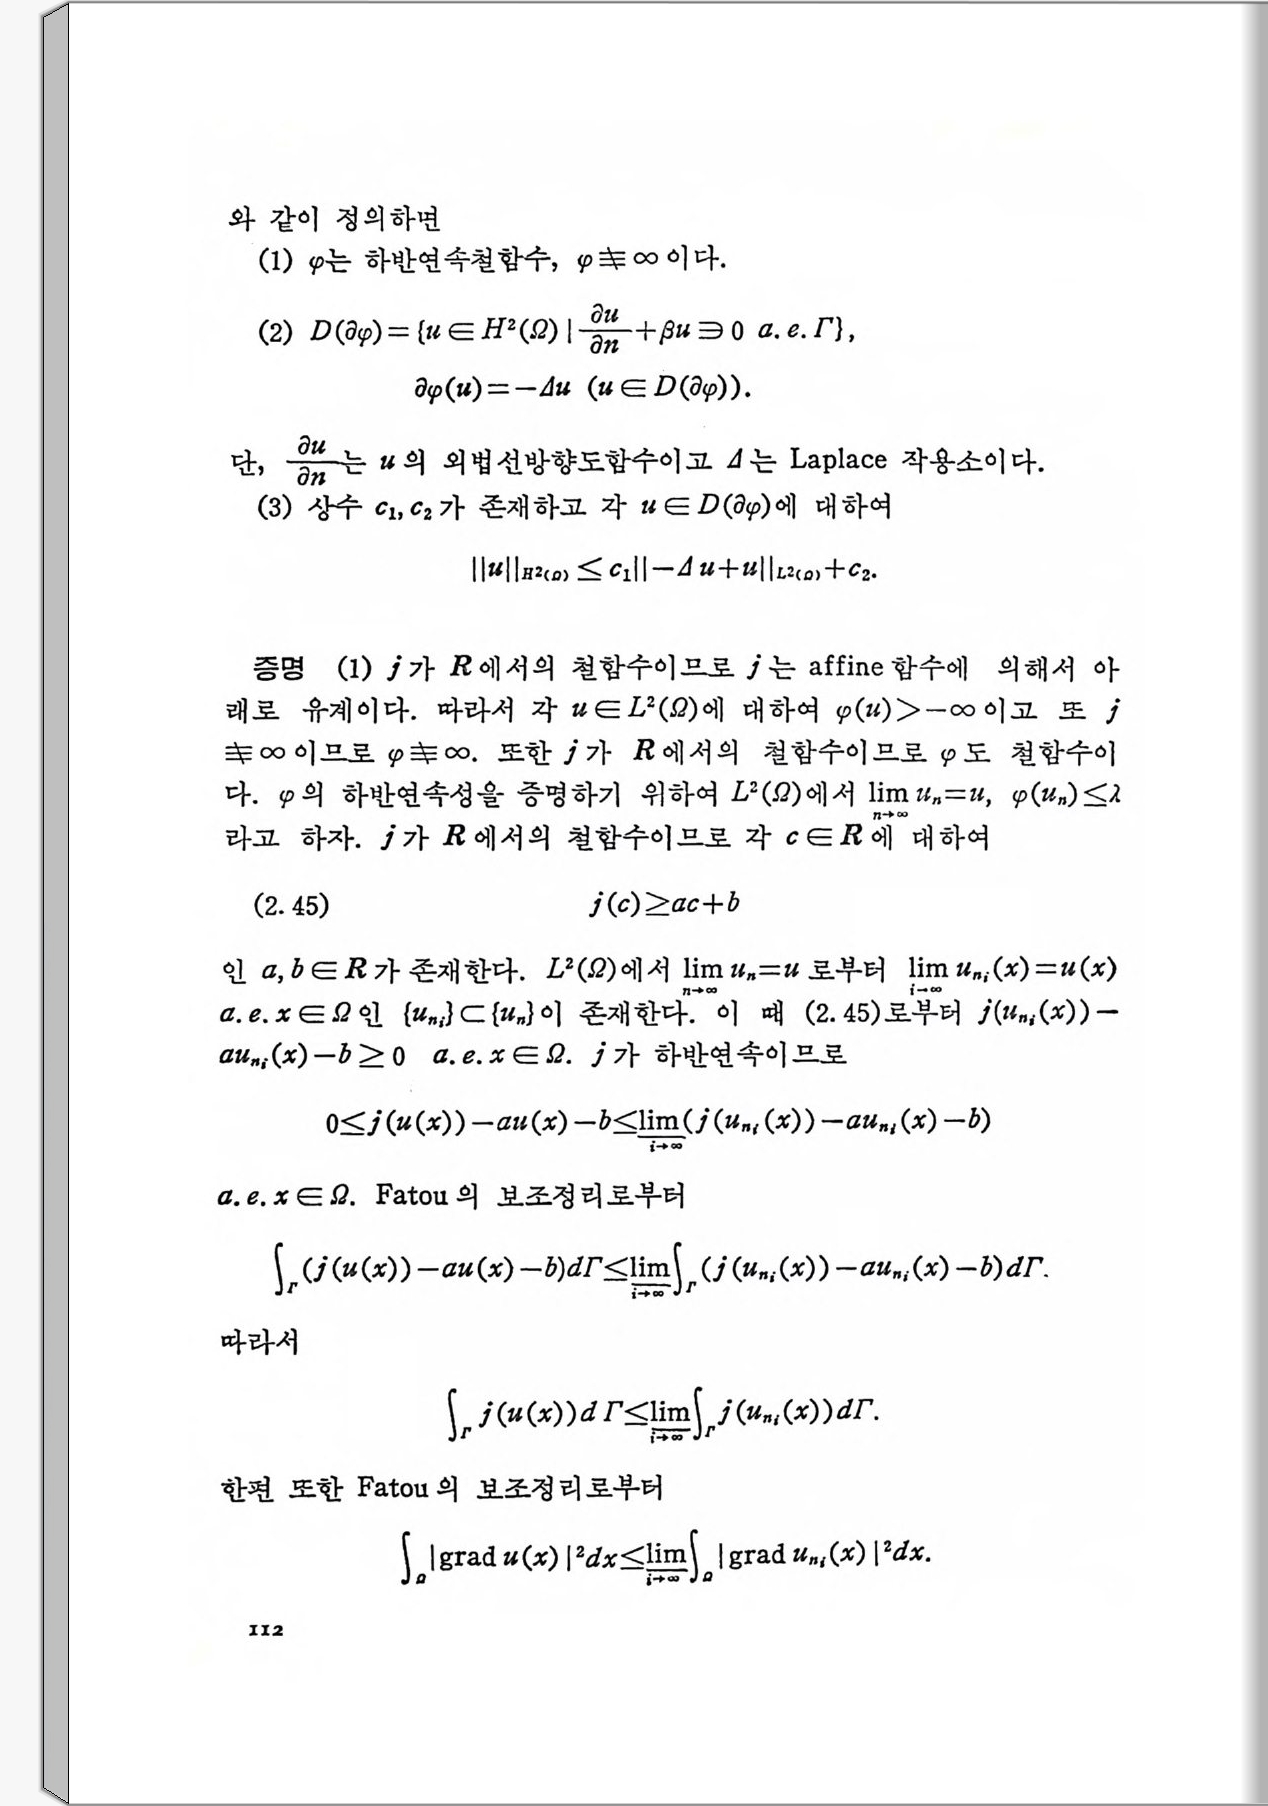 와 같이 정의하면
(1) φ는 하반연속철함수, φ≢∞이다.
(2) D(∂φ)={u∈H²(Ω)|∂u/∂n+βu∋0 a.e.Γ},
∂φ(u)=−Δu (u∈D(∂φ)).
단, ∂u/∂n는 u의 외법선방향도함수이고 Δ는 Laplace 작용소이다.
(3) 상수 c₁, c₂가 존재하고 각 u∈D(∂φ)에 대하여
||u||_{H²(Ω)}≤c₁||−Δu+u||_{L²(Ω)}+c₂.
증명 (1) j가 R에서의 철함수이므로 j는 affine 함수에 의해서 아
래로 유계이다. 따라서 각 u∈L²(Ω)에 대하여 φ(u)>−∞이고 또 j
≢∞이므로 φ≢∞. 또한 j가 R에서의 철함수이므로 φ도 철함수이
다. φ의 하반연속성을 증명하기 위하여 L²(Ω)에서 lim_{n→∞} uₙ=u, φ(uₙ)≤λ
라고 하자. j가 R에서의 철함수이므로 각 c∈R에 대하여
(2.45) j(c)≥ac+b
인 a, b∈R가 존재한다. L²(Ω)에서 lim_{n→∞} uₙ=u로부터 lim_{i→∞} u_{n_i}(x)=u(x)
a.e. x∈Ω인 {u_{n_i}}⊂{uₙ}이 존재한다. 이 때 (2.45)로부터 j(u_{n_i}(x))−
au_{n_i}(x)−b≥0 a.e. x∈Ω. j가 하반연속이므로
0≤j(u(x))−au(x)−b≤\underline{lim}_{i→∞}(j(u_{n_i}(x))−au_{n_i}(x)−b)
a.e. x∈Ω. Fatou의 보조정리로부터
∫_Γ(j(u(x))−au(x)−b)dΓ≤\underline{lim}_{i→∞}∫_Γ(j(u_{n_i}(x))−au_{n_i}(x)−b)dΓ.
따라서
∫_Γ j(u(x))dΓ≤\underline{lim}_{i→∞}∫_Γ j(u_{n_i}(x))dΓ.
한편 또한 Fatou의 보조정리로부터
∫_Ω|grad u(x)|²dx≤\underline{lim}_{i→∞}∫_Ω|grad u_{n_i}(x)|²dx.
112